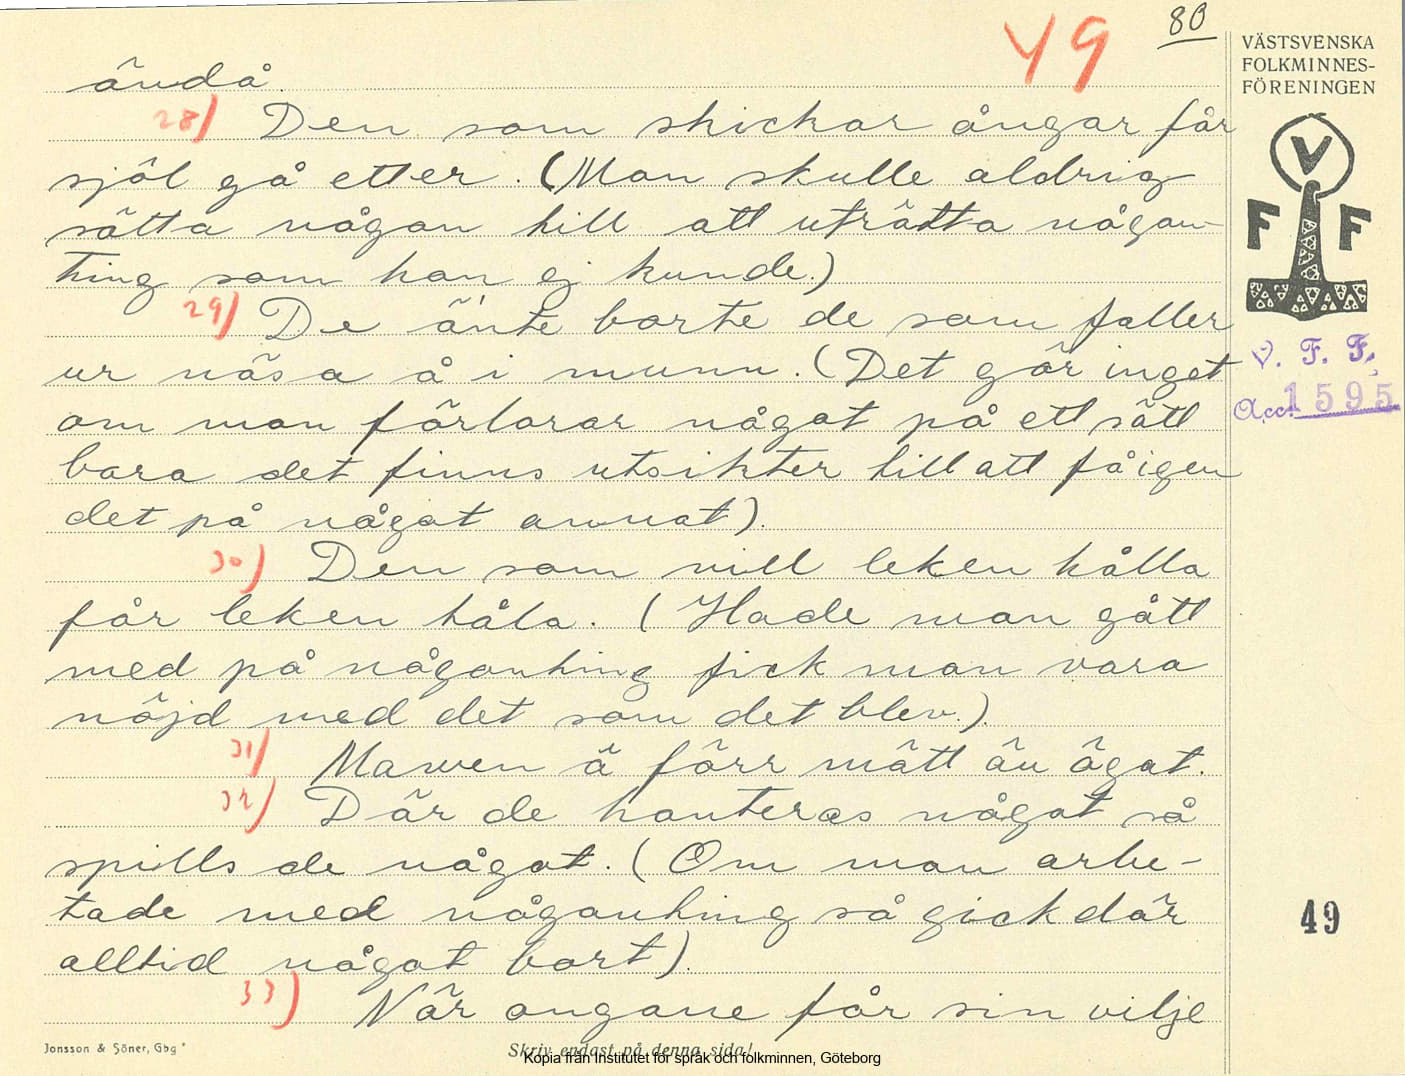 49
80
VÄSTSVENSKA
FOLKMINNES-
FÖRENINGEN
V
F F
V. F. F.
Acc. 1595
ändå.
28) Den som skickar ångar får
själ gå etter. (Man skulle aldrig
sätta någon till att uträtta någon-
ting som han ej kunde.)
29) De änte borte de som faller
ur näsa å i munn. (Det gör inget
om man förlorar något på ett sätt
bara det finns utsikter till att få igen
det på något annat).
30) Den som vill leken hålla
får leken tåla. (Hade man gått
med på någonting fick man vara
nöjd med det som det blev.).
31) Mawen ä förr mätt än ögat.
32) Där de hanteras något så
spills de något. (Om man arbe-
tade med någonting så gick där
alltid något bort).
33) När ongane får sin vilje
49
Jonsson & Söner, Gbg
Skriv endast på denna sida!
Kopia från Institutet för språk och folkminnen, Göteborg